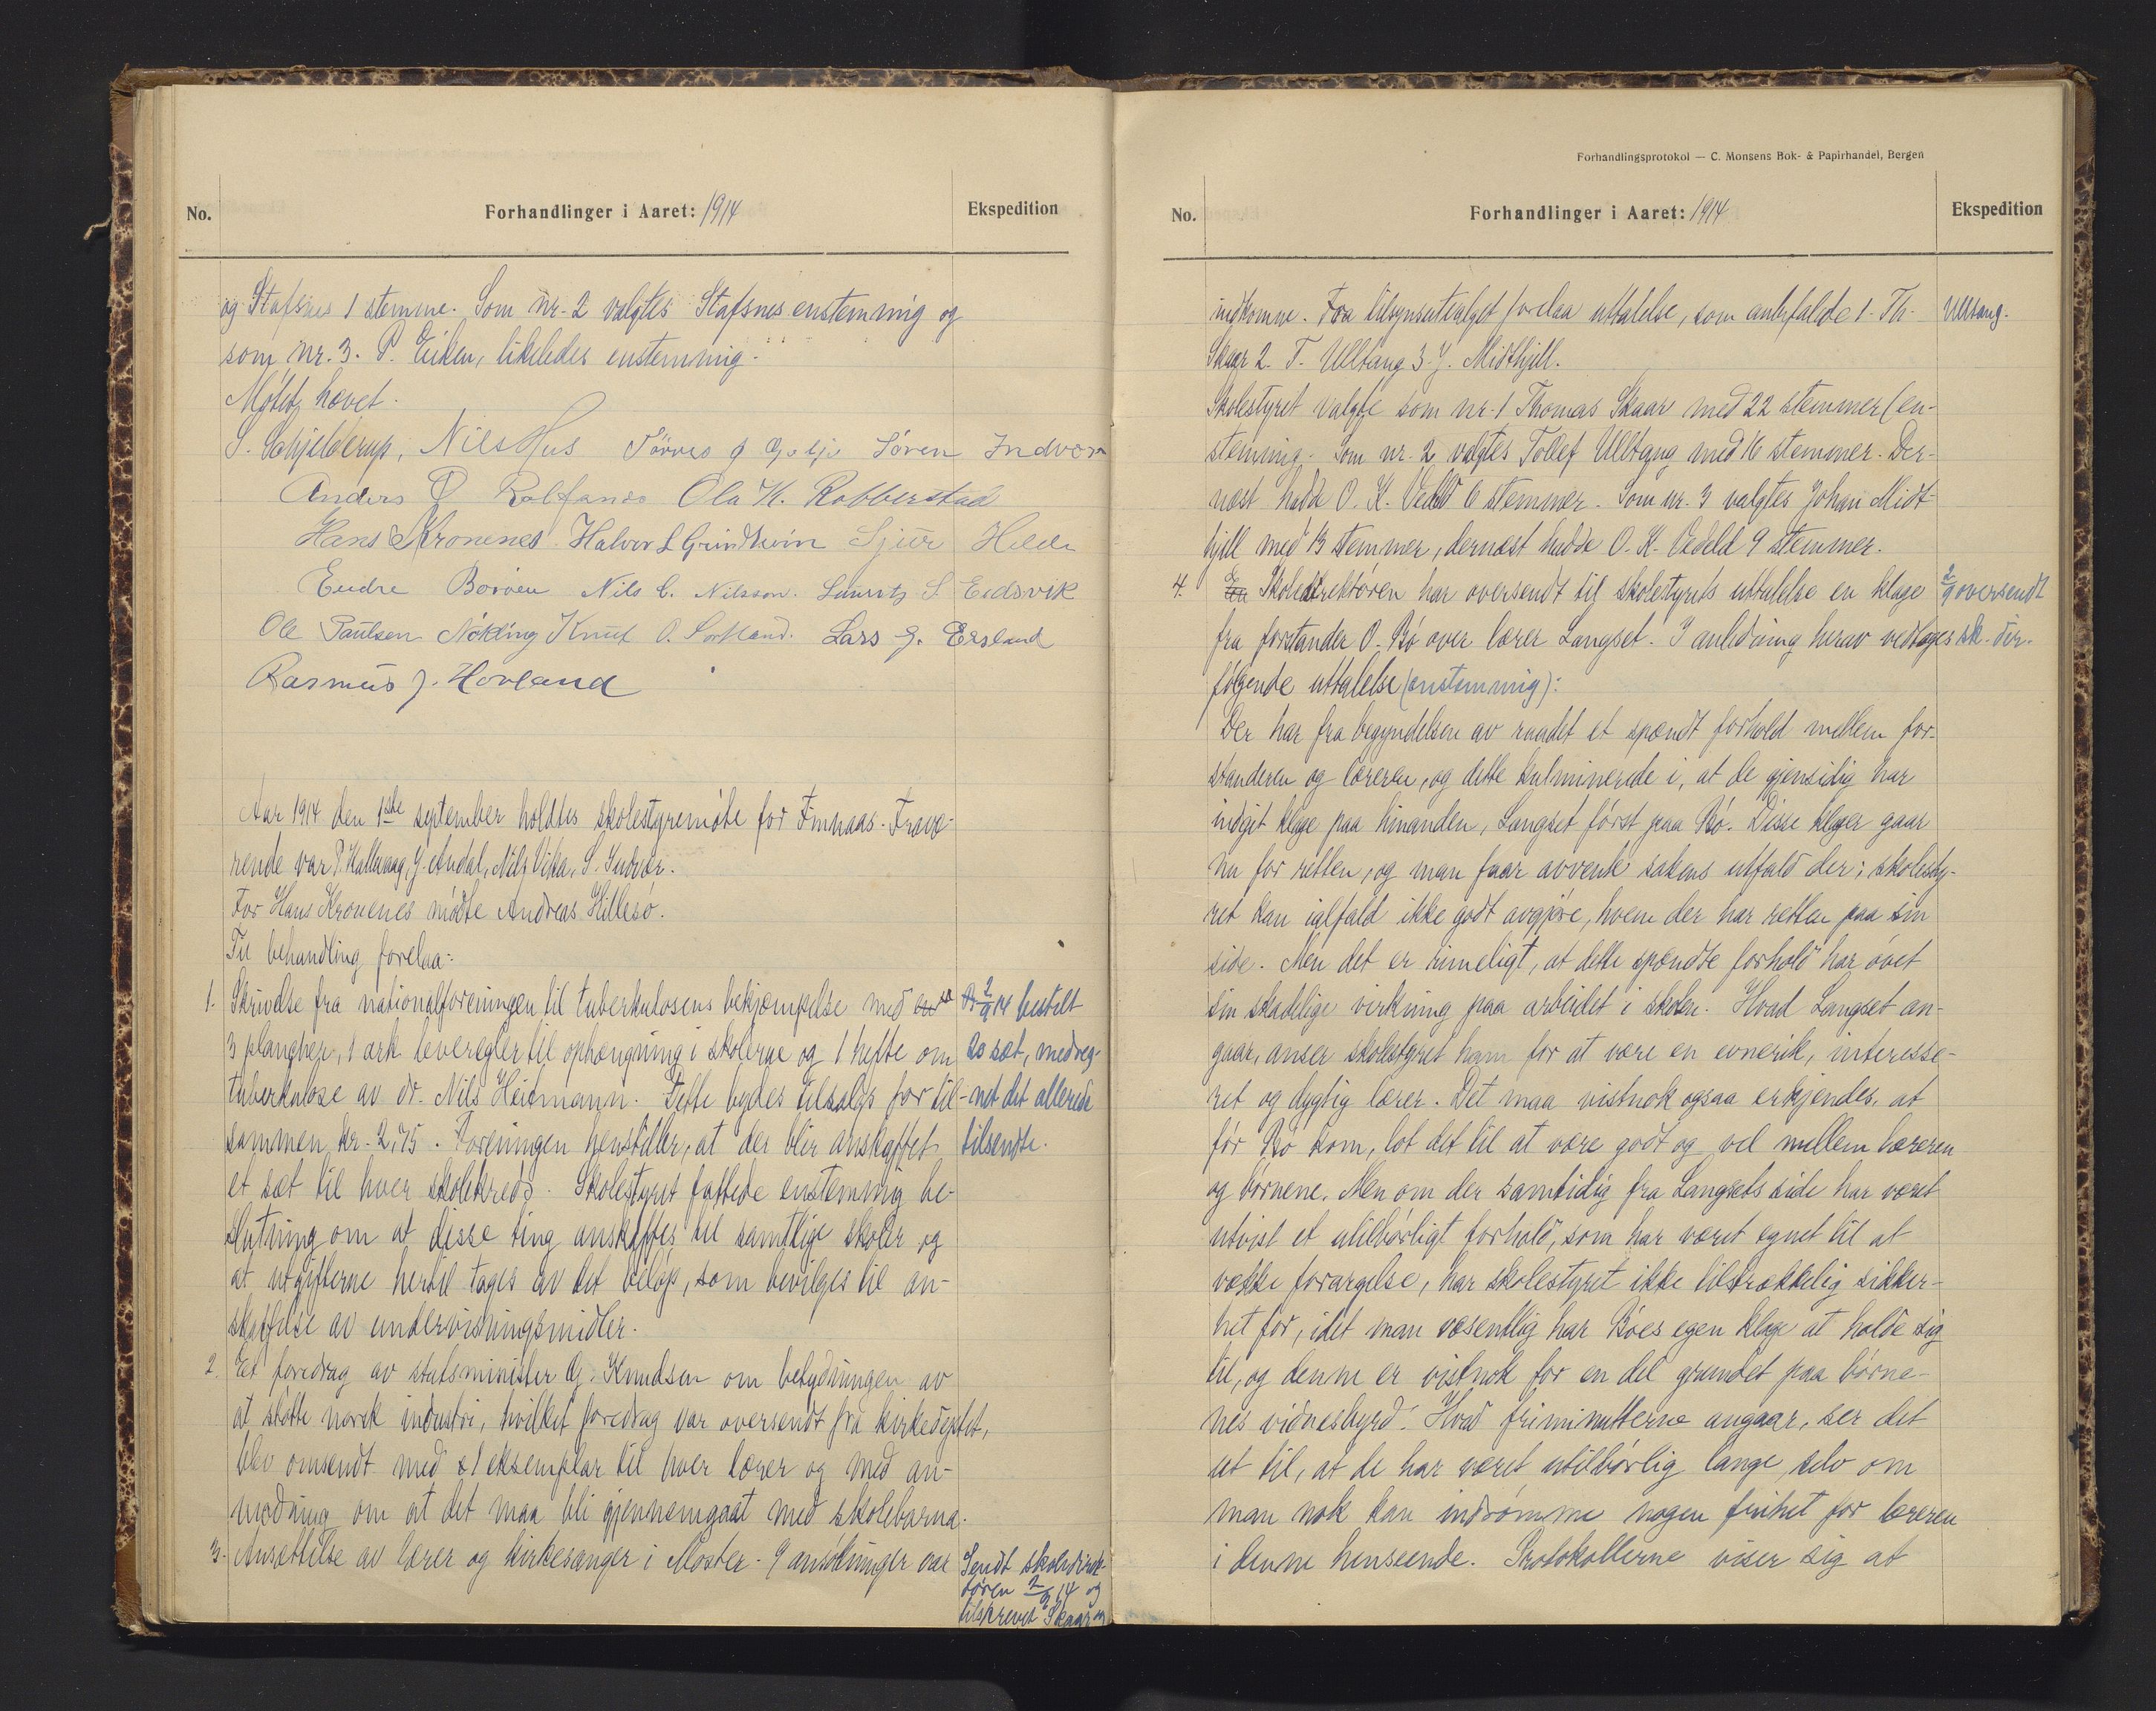 No.
Forhandlinger i Aaret: 1914
Ekspedition
og Stafsnes 1 stemme. Som nr. 2 valgtes Stafsnes enstemmig og
som nr. 3. P. Eiken, likeledes enstemmig.
Møtet hævet.
S. Schjelderup, Nils Hus Søren Indvær
Anders Ola H. Robberstad
Hans Kronenes Halvor L Grindheim Sjur Helde
Endre Boröen Nils C. Nilsson. Lauritz S Eidsvik
Ole Paulsen Nökling Knut O. Sortland. Lars J. Ersland
Rasmus J. Hovland
Aar 1914 den 1ste september holdtes skolestyremöte for Finnaas. Fravæ-
rende var P. Hallvaag, J. Andal, Nils Vika, S. Indvær.
For Hans Kronenes mødte Andreas Hillesø.
Til behandling forelaa:
1. Skrivelse fra nationalforeningen til tuberkulosens bekjæmpelse med
3 plancher, 1 ark leveregler til ophængning i skolerne og 1 hefte om
tuberkulose av dr. Nils Heitmann. Dette bydes tilsalgs for til-
sammen kr. 2,75. Foreningen henstiller, at der blir anskaffet
et sæt til hver skolekreds. Skolestyret fattede enstemmig be-
slutning om at disse ting anskaffes til samtlige skoler og
at utgifterne hertil tages av det beløp, som bevilges til an-
skaffelse av undervisningsmidler.
2/9 14 bestilt
20 sæt, medreg-
net det allerede
tilsendte.
2. Et foredrag av statsminister G. Knudsen om betydningen av
at støtte norsk industri, hvilket foredrag var oversendt fra kirkedeptet,
blev omsendt med 1 eksemplar til hver lærer og med an-
modning om at det maa bli gjennemgaat med skolebarna.
3. Ansættelse av lærer og kirkesanger i Moster. 9 ansøkninger var
Sendt skoledirek-
tören 2/9 14 og
tilskrevet Skaar og
Forhandlingsprotokol — C. Monsens Bok- & Papirhandel, Bergen
No.
Forhandlinger i Aaret: 1914
Ekspedition
indkomne. Fra tilsynsutvalget forelaa uttalelse, som anbefalde 1. Th.
Skaar 2. T. Ulltang 3. J. Midthjell.
Ulltang.
Skolestyret valgte som nr. 1 Thomas Skaar med 22 stemmer (en-
stemmig. Som nr. 2 valgtes Tollef Ulltang med 16 stemmer. Der-
næst hadde O. K. Vedeld 6 stemmer. Som nr. 3 valgtes Johan Midt-
hjell med 13 stemmer, dernæst hadde O. K. Vedeld 9 stemmer.
4. Skoledirektören har oversendt til skolestyrets uttalelse en klage
fra forstander O. Bö over lærer Langset. I anledning herav vedtages
følgende uttalelse (enstemmig):
2/9 oversendt
sk. dir.
Der har fra begyndelsen av raadet et spændt forhold mellem for-
standeren og læreren, og dette kulminerede i, at de gjensidig har
indgit klage paa hinanden, Langset først paa Bö. Disse klager gaar
nu for retten, og man faar avvente sakens utfald der; skolesty-
ret kan ialfald ikke godt avgjøre, hvem der har retten paa sin
side. Men det er rimeligt, at dette spændte forhold har øvet
sin skadelige virkning paa arbeidet i skolen. Hvad Langset an-
gaar, anser skolestyret ham for at være en evnerik, interesse-
ret og dygtig lærer. Det maa vistnok ogsaa erkjendes, at
før Bö kom, lot det til at være godt og vel mellem læreren
og börnene. Men om der samtidig fra Langsets side har været
utvist et utilbörligt forhold, som har været egnet til at
vække forargelse, har skolestyret ikke tilstrækkelig sikker-
het for, idet man væsentlig har Böes egen klage at holde sig
til, og denne er vistnok for en del grundet paa börne-
nes vidnesbyrd. Hvad friminutterne angaar, ser det
ut til, at de har været utilbörlig lange, selv om
man nok kan indrömme nogen frihet for læreren
i denne henseende. Protokollerne viser sig at